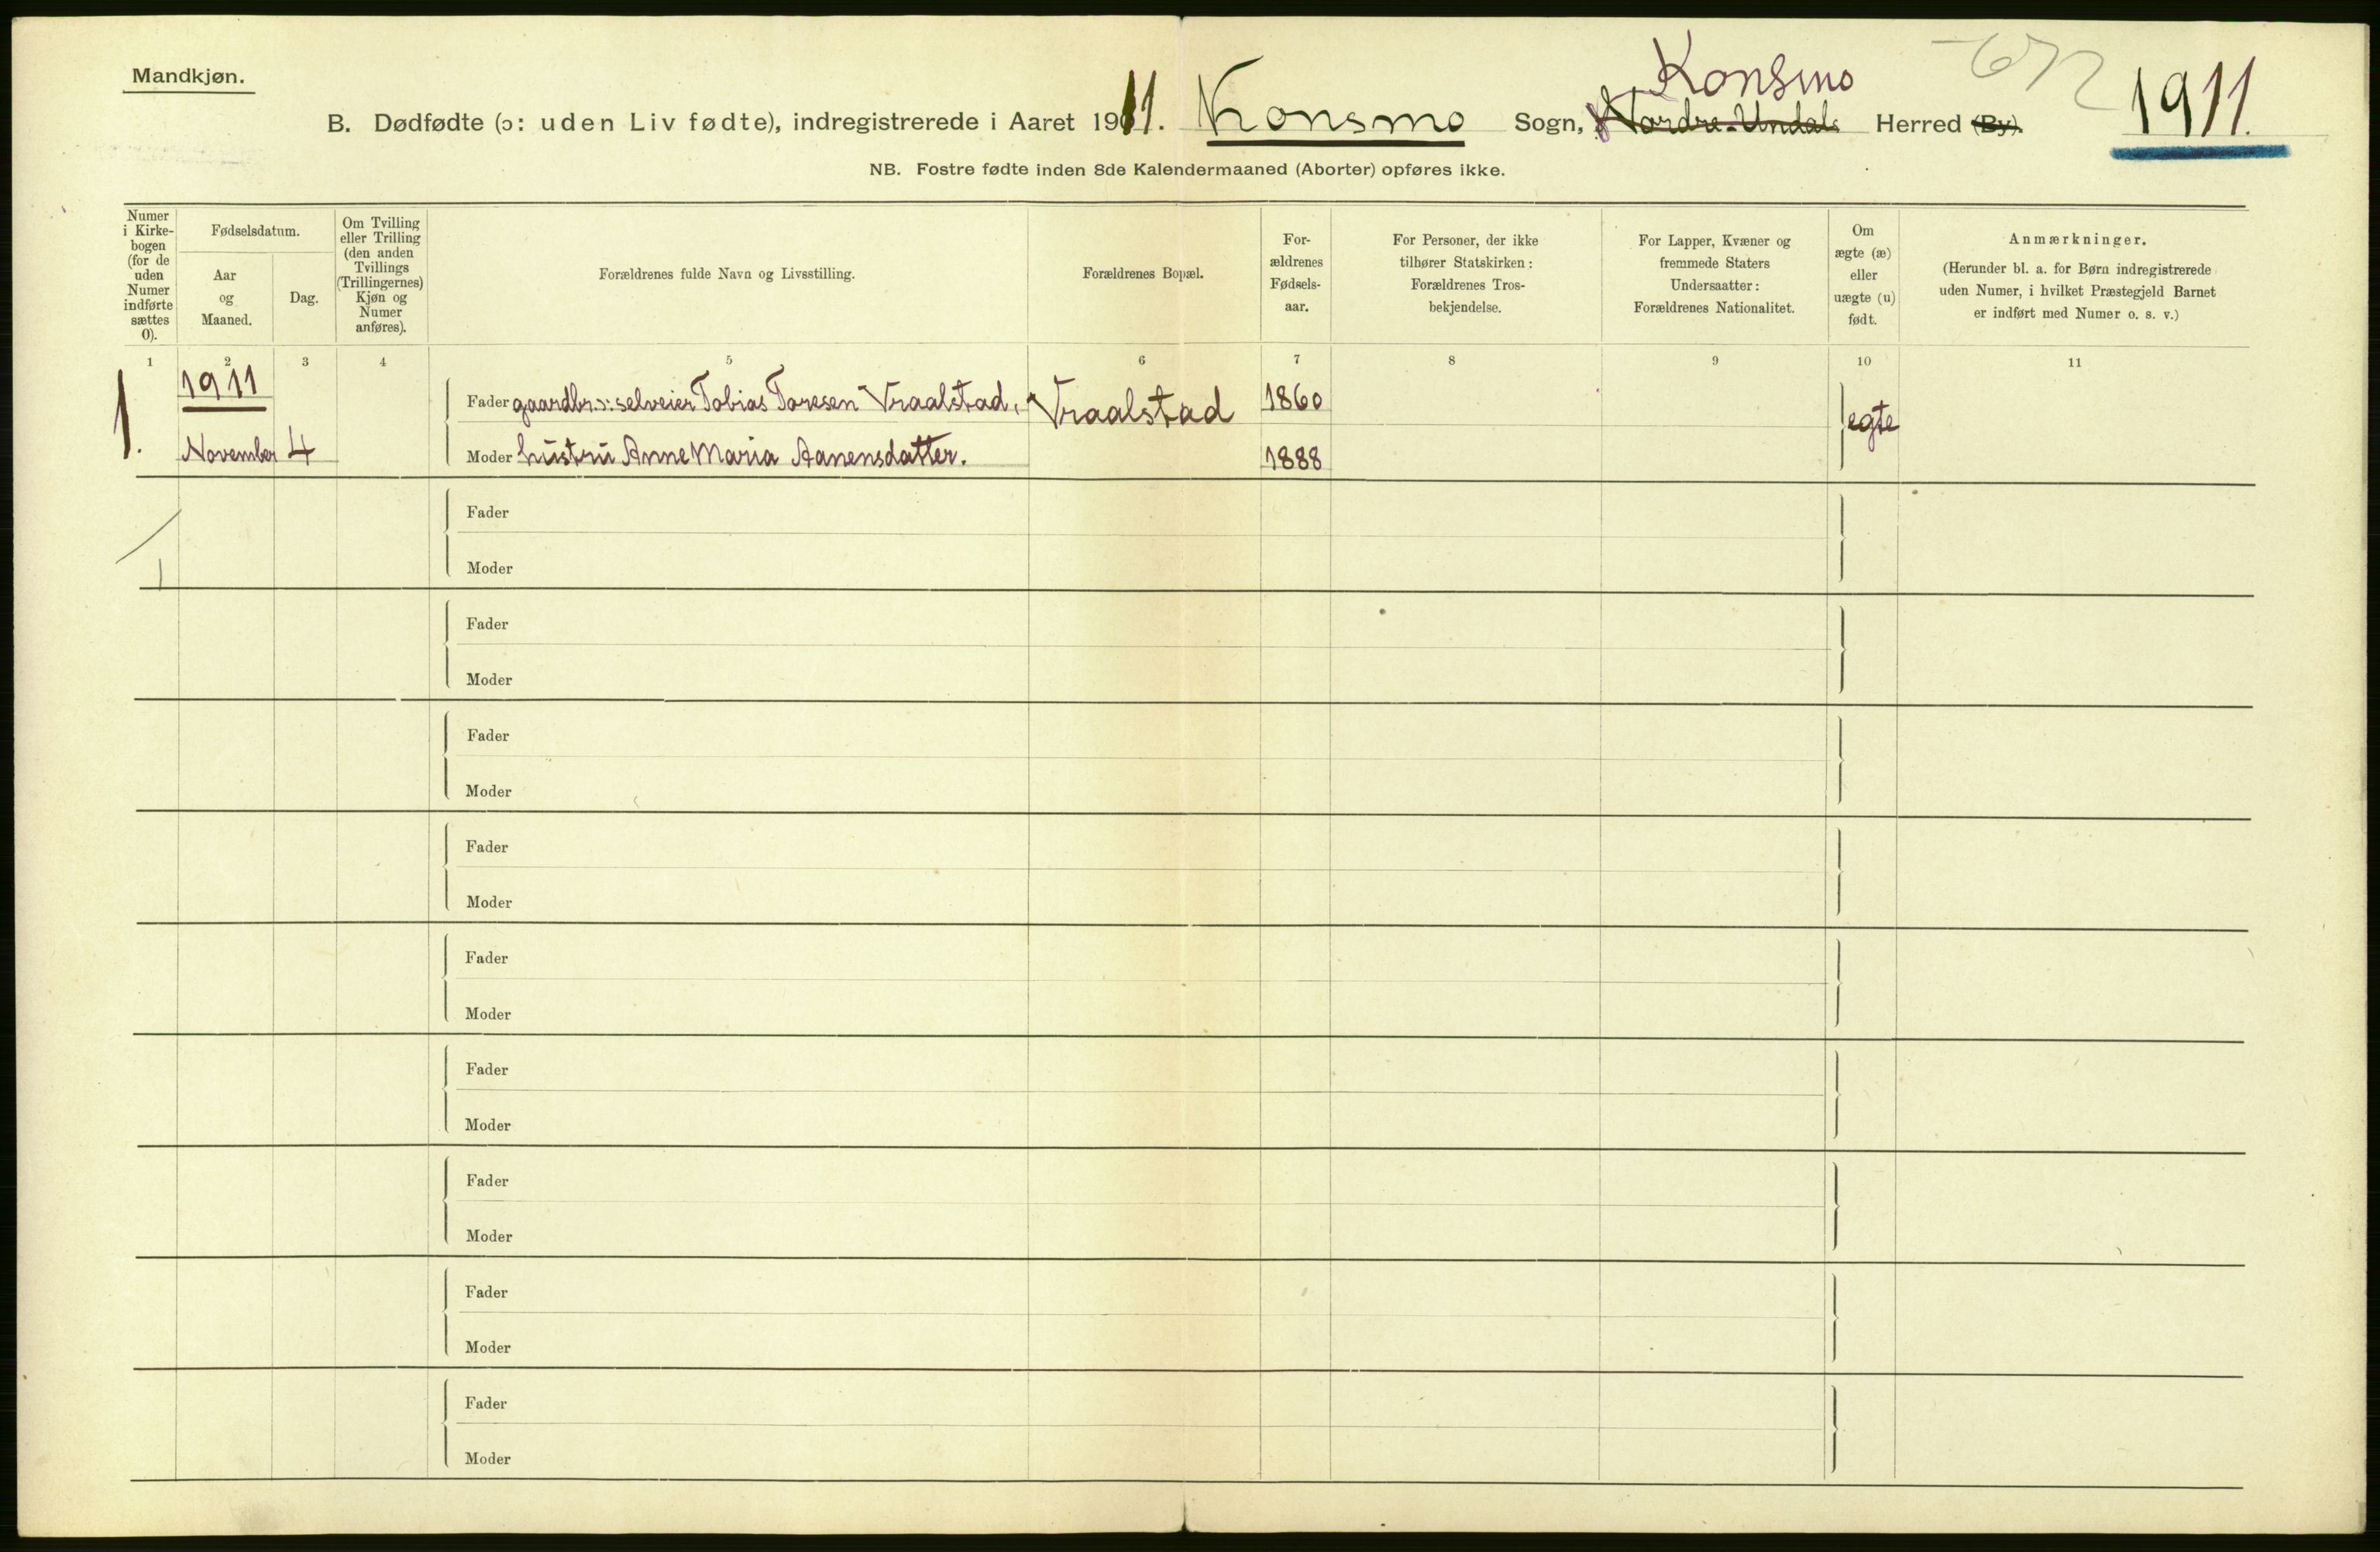 Mandkjøn.
B. Dødfødte (ɔ: uden Liv fødte), indregistrerede i Aaret 1911. Konsmo Sogn, Nordre-Undals Konsmo Herred (By). 1911.
NB. Fostre fødte inden 8de Kalendermaaned (Aborter) opføres ikke.
Numer i Kirke-bogen (for de uden Numer indførte sættes 0).
Fødselsdatum.
Aar og Maaned.
Dag.
Om Tvilling eller Trilling (den anden Tvillings (Trillingernes) Kjøn og Numer anføres).
Forældrenes fulde Navn og Livsstilling.
Forældrenes Bopæl.
For-ældrenes Fødsels-aar.
For Personer, der ikke tilhører Statskirken: Forældrenes Tros-bekjendelse.
For Lapper, Kvæner og fremmede Staters Undersaatter: Forældrenes Nationalitet.
Om ægte (æ) eller uægte (u) født.
Anmærkninger.
(Herunder bl. a. for Børn indregistrerede uden Numer, i hvilket Præstegjeld Barnet er indført med Numer o. s. v.)
1 2 3 4 5 6 7 8 9 10 11
1911
1. Fader gaardbr. ɔ: selveier Tobias Toresen Vraalstad, Vraalstad 1860 egte
November 4 Moder hustru Anne Maria Aanensdatter. 1888
Fader
1 Moder
Fader
Moder
Fader
Moder
Fader
Moder
Fader
Moder
Fader
Moder
Fader
Moder
Fader
Moder
Fader
Moder